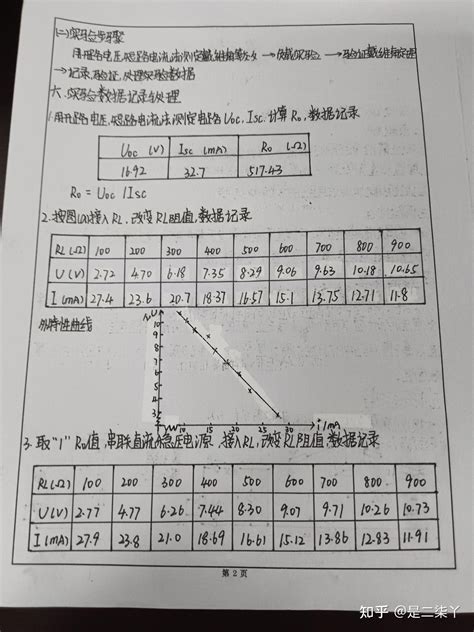 (二)实验步骤
用开路电压、短路电流法测定戴维南等效 → 负载实验 → 验证戴维南定理
→ 记录、验证、处理实验数据
六、实验数据记录与处理
1.用开路电压、短路电流法测定电路Uoc、Isc.计算Ro,数据记录
Uoc (V) Isc (mA) Ro (Ω)
16.92 32.7 517.43
Ro = Uoc / Isc
2.按图(a)接入RL,改变RL阻值,数据记录
RL(Ω) 100 200 300 400 500 600 700 800 900
U(V) 2.72 4.70 6.18 7.35 8.29 9.06 9.63 10.18 10.65
I(mA) 27.4 23.6 20.7 18.37 16.57 15.1 13.75 12.71 11.8
外特性曲线
10
9
8
7
6
5
4
3
10 15 20 25 30 i/mA
3.取"1"Ro值,串联直流稳压电源,接入RL,改变RL阻值,数据记录
RL(Ω) 100 200 300 400 500 600 700 800 900
U(V) 2.77 4.77 6.26 7.44 8.30 9.07 9.71 10.26 10.73
I(mA) 27.9 23.8 21.0 18.69 16.61 15.12 13.86 12.83 11.91
第 2 页
知乎 @是二柒丫